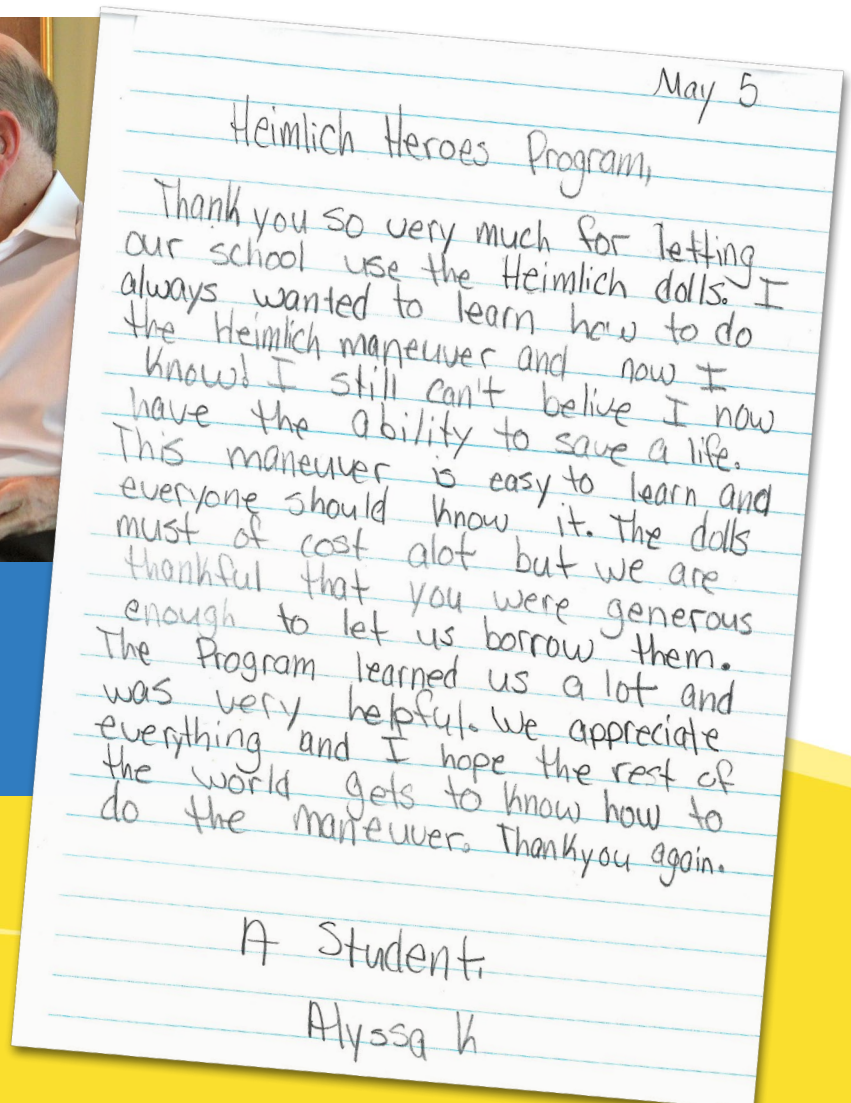 May 5
Heimlich Heroes Program,
Thank you so very much for letting
our school use the Heimlich dolls. I
always wanted to learn how to do
the Heimlich maneuver and now I
know! I still can't belive I now
have the ability to save a life.
This maneuver is easy to learn and
everyone should know it. The dolls
must of cost alot but we are
thankful that you were generous
enough to let us borrow them.
The Program learned us a lot and
was very helpful. We appreciate
everything and I hope the rest of
the world gets to know how to
do the maneuver. Thankyou again.
A Student,
Alyssa K